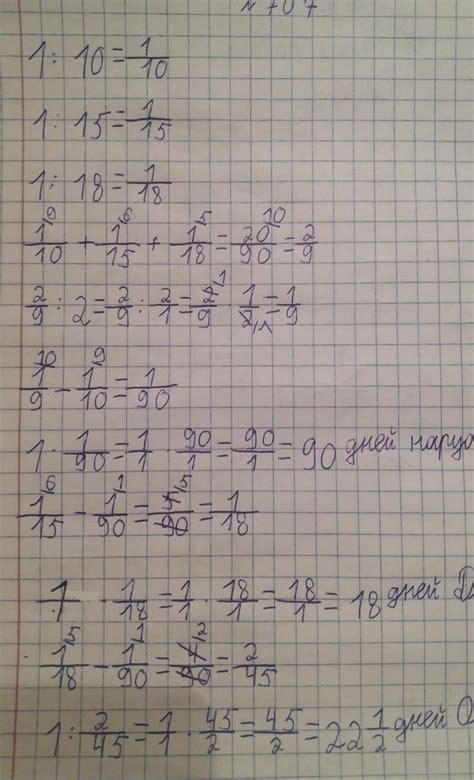 № 707
1 : 10 = 1/10
1 : 15 = 1/15
1 : 18 = 1/18
1^9/10 + 1^6/15 + 1^5/18 = 20^10/90 = 2/9
2/9 : 2 = 2/9 : 2/1 = 2^1/9 · 1/2_1 = 1/9
1^10/9 - 1^9/10 = 1/90
1 · 1/90 = 1/1 · 90/1 = 90/1 = 90 дней нарцо
1^6/15 - 1^1/90 = /90 = 1/18
1 · 1/18 = 1/1 · 18/1 = 18/1 = 18 дней
1^5/18 - 1^1/90 = /90 = 2/45
1 : 2/45 = 1/1 · 45/2 = 45/2 = 22 1/2 дней О